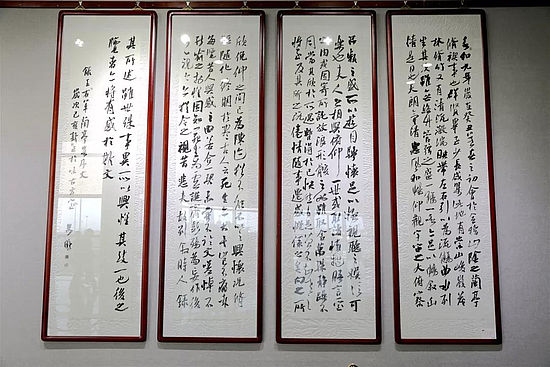 永和九年歲在癸丑暮春之初會於會稽山陰之蘭亭
修禊事也群賢畢至少長咸集此地有崇山峻嶺茂
林修竹又有清流激湍映帶左右引以為流觴曲水列
坐其次雖無絲竹管弦之盛一觴一詠亦足以暢敘幽
情是日也天朗氣清惠風和暢仰觀宇宙之大俯察
品類之盛所以遊目騁懷足以極視聽之娛信可
樂也夫人之相與俯仰一世或取諸懷抱悟言一室
之內或因寄所託放浪形骸之外雖趣舍萬殊靜躁不
同當其欣於所遇暫得於己快然自足不知老之
將至及其所之既倦情隨事遷感慨係之矣向之所
欣俛仰之間已為陳迹猶不能不以之興懷況修
短隨化終期於盡古人云死生亦大矣豈不痛哉
每覽昔人興感之由若合一契未嘗不臨文嗟悼不
能喻之於懷固知一死生為虛誕齊彭殤為妄作後
之視今亦猶今之視昔悲夫故列敘時人錄
其所述雖世殊事異所以興懷其致一也後之
覽者亦將有感於斯文
錄王右軍蘭亭序文
歲次己